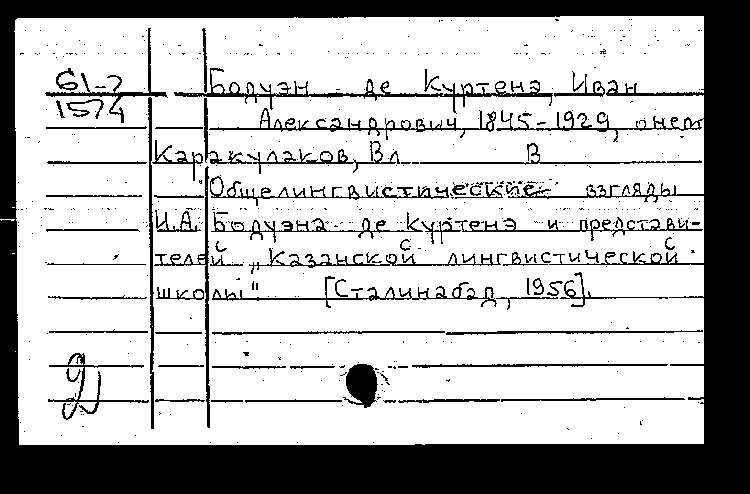 61-7
1574
Бодуэн де Куртенэ, Иван
Александрович, 1845-1929, о нем
Каракулаков, Вл В
Общелингвистические взгляды
И.А. Бодуэна де Куртенэ и представи-
телей „Казанской лингвистической
школы". [Сталинабад, 1956].